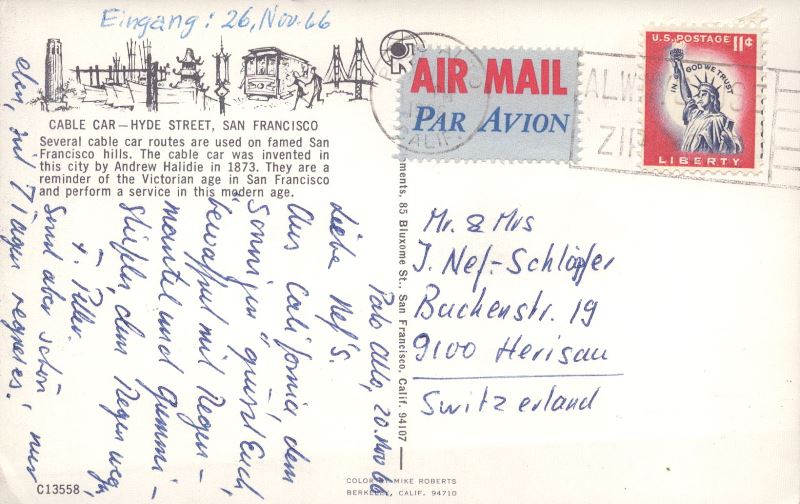 Eingang: 26. Nov. 66
AIR MAIL
PAR AVION
U.S. POSTAGE 11¢
IN GOD WE TRUST
LIBERTY
CALIF
ZIP
CABLE CAR — HYDE STREET, SAN FRANCISCO
Several cable car routes are used on famed San
Francisco hills. The cable car was invented in
this city by Andrew Halidie in 1873. They are a
reminder of the Victorian age in San Francisco
and perform a service in this modern age.
Palo Alto, 20. Nov 66
Liebe Nef's.
Aus California, dem
"sonnigen" grüsst Euch,
bewaffnet mit Regen-
mantel und Gummi-
stiefeln, dem Regen weg,
+. Peter.
Sind aber schön
nur
7 Tagen regnet es.
ments, 85 Bluxome St., San Francisco, Calif. 94107
Mr. & Mrs
J. Nef-Schläpfer
Buchenstr. 19
9100 Herisau
Switzerland
C13558
COLOR BY MIKE ROBERTS
BERKELEY, CALIF. 94710